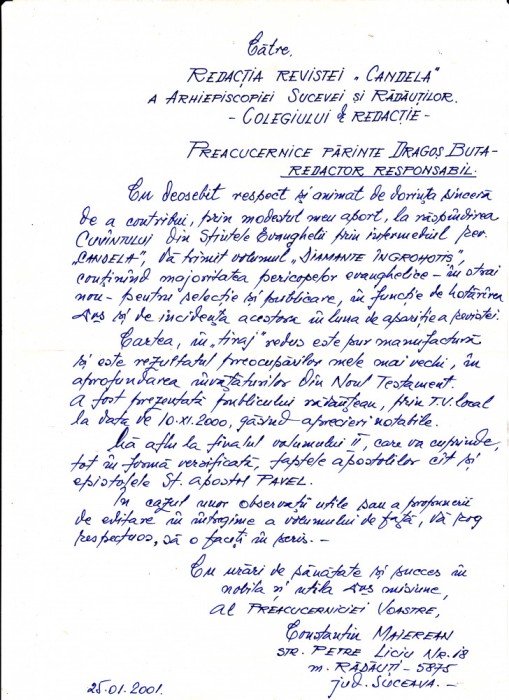 Către,
REDACȚIA REVISTEI „CANDELA"
A ARHIEPISCOPIEI SUCEVEI ȘI RĂDĂUȚILOR.
- COLEGIULUI de REDACȚIE -
PREACUCERNICE PĂRINTE DRAGOȘ BUTA-
REDACTOR RESPONSABIL.
Cu deosebit respect și animat de dorința sinceră
de a contribui, prin modestul meu aport, la răspîndirea
CUVÎNTULUI din Sfintele Evanghelii prin intermediul rev.
„CANDELA", Vă trimit volumul „DIAMANTE ÎNGROPATE",
conținînd majoritatea pericopelor evanghelice - în
nou - pentru selecție și publicare, în funcție de hotărîrea
Dvs și de incidența acestora în luna de apariție a revistei.
Cartea, în „tiraj" redus este pur manufactură
și este rezultatul preocupărilor mele mai vechi, în
aprofundarea învățăturilor din Noul Testament.
A fost prezentată publicului rădăuțean, prin T.V. local
la data de 10.XI.2000, găsind aprecieri notabile.
Mă aflu la finalul volumului II, care va cuprinde,
tot în formă versificată, faptele apostolilor cît și
epistolele Sf. apostol PAVEL.
În cazul unor observații utile sau a propunerii
de editare în întregime a volumului de față, Vă rog
respectuos, să o faceți în scris. -
Cu urări de sănătate și succes în
nobila și utila Dvs misiune,
al PREACUCERNICIEI VOASTRE,
Constantin MAIEREAN
STR. PETRE LICIU NR. 18
m. RĂDĂUȚI - 5875
jud. SUCEAVA. -
25.01.2001.